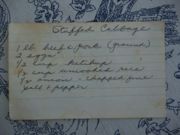 Stuffed Cabbage
1 lb beef & pork (ground)
2 eggs
1/2 cup ketchup
1/2 cup uncooked rice
1/2 onion - chopped fine
salt & pepper